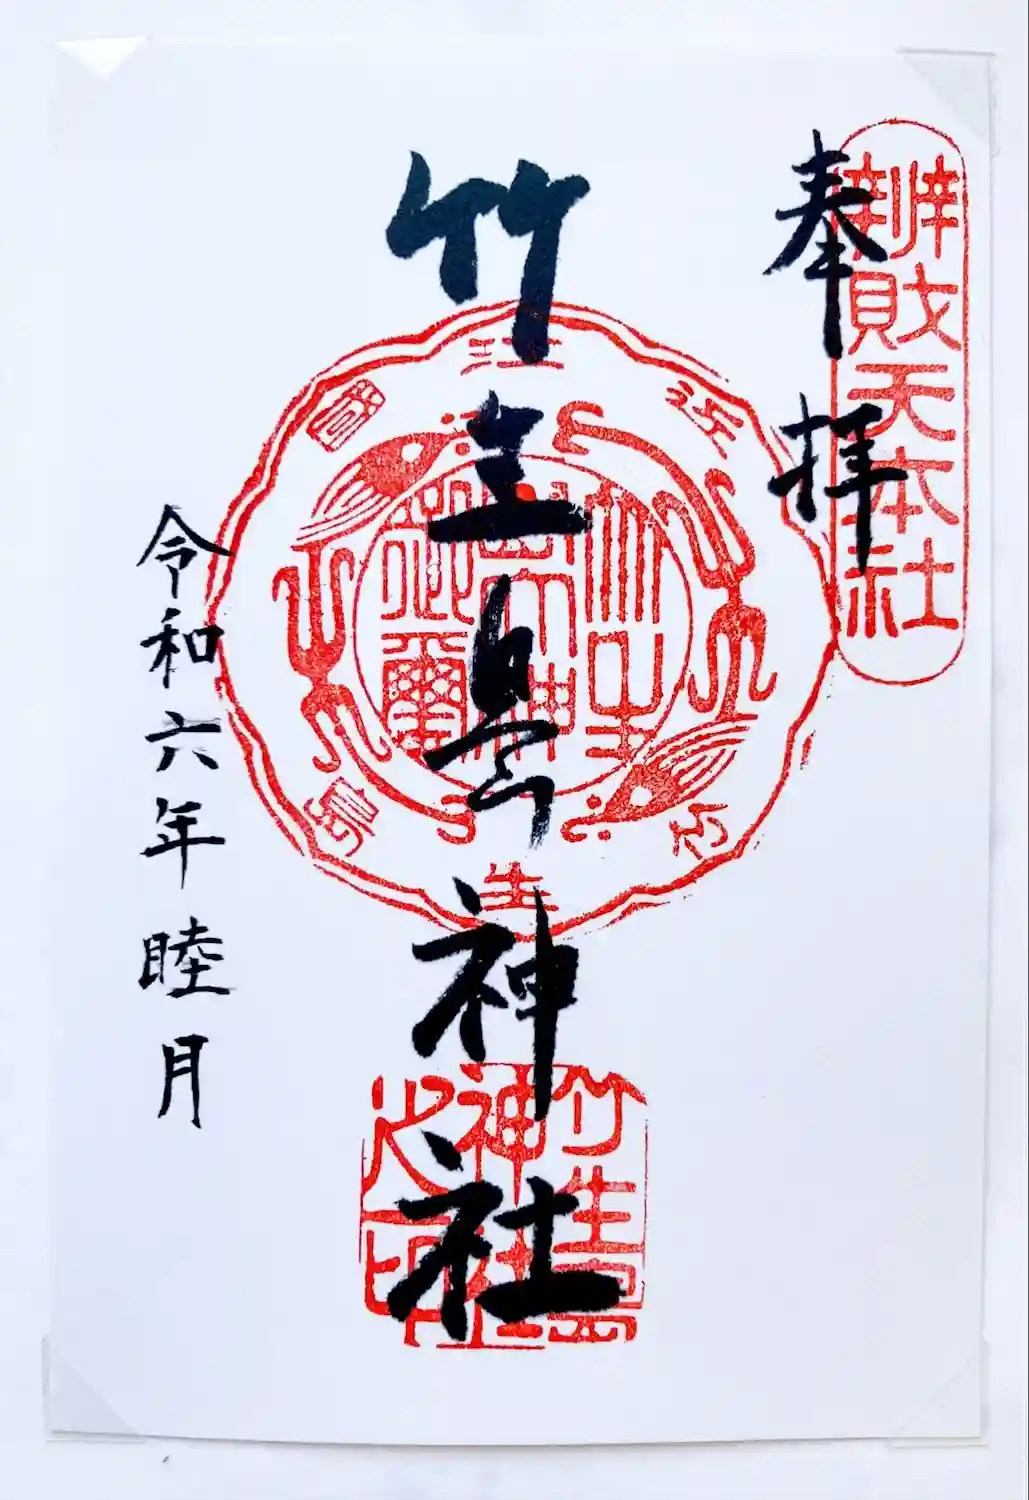 奉拝
辨財天本社
竹生島神社
近江國
竹生島
竹生島神社之印
令和六年睦月